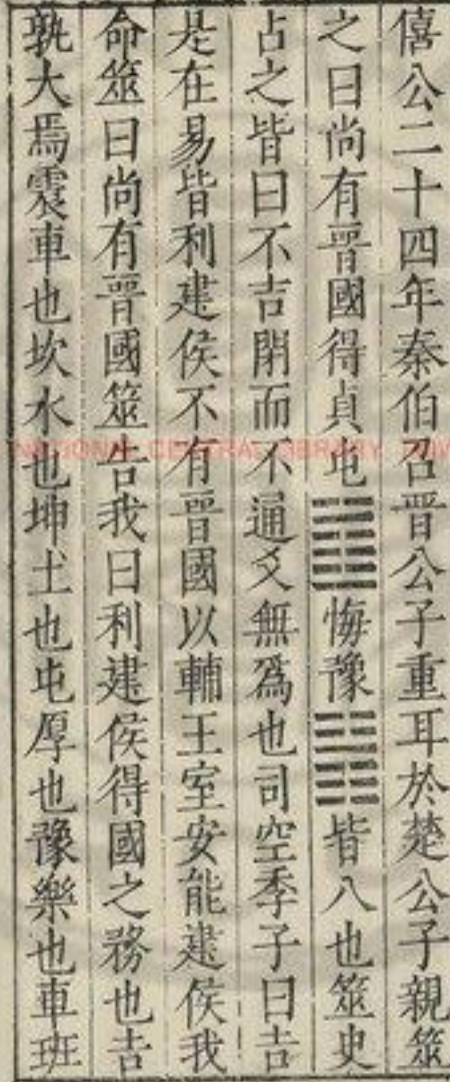 僖公二十四年秦伯召晉公子重耳於楚公子親筮
之曰尚有晉國得貞屯䷂悔豫䷏皆八也筮史
占之皆曰不吉閉而不通爻無爲也司空季子曰吉
是在易皆利建侯不有晉國以輔王室安能建侯我
命筮曰尚有晉國筮告我曰利建侯得國之務也吉
孰大焉震車也坎水也坤土也屯厚也豫樂也車班
NATIONAL CENTRAL LIBRARY